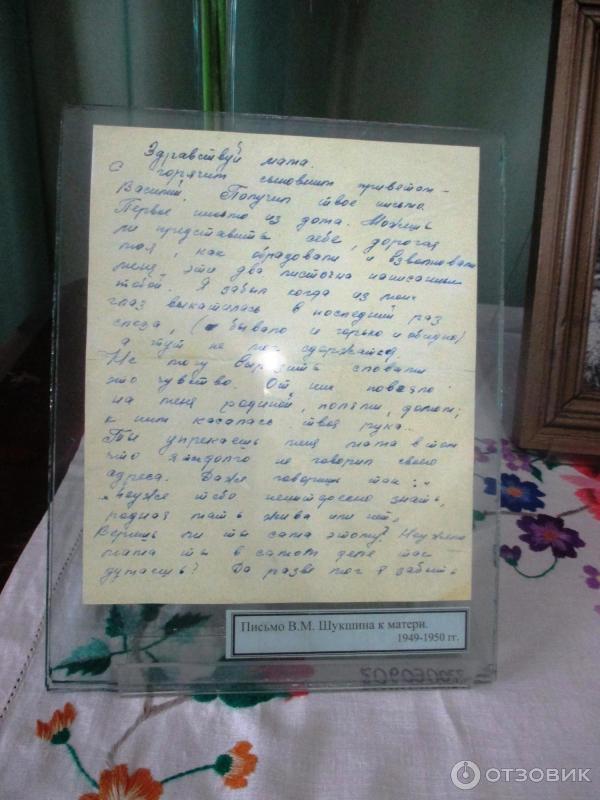 Здравствуй мама.
С горячим сыновним приветом –
Василий. Получил твое письмо.
Первое письмо из дома. Можешь
ли представить себе, дорогая
моя, как обрадовали и взволновали
меня эти два листочка написанные
тобой. Я забыл когда из моих
глаз выкатилась в последний раз
слеза, (бывало и горько и обидно)
а тут не мог сдержаться.
Не могу выразить словами
это чувство. От них повеяло
на меня родиной, полями, домом;
к ним касалась твоя рука..
Ты упрекаешь меня мама в том
что я долго не говорил своего
адреса. Даже говоришь так:
тебе неинтересно знать,
родная мать жива или нет,
Веришь ли ты сама этому? Неужели
мама ты в самом деле так
думаешь? Да разве мог я забыть
Письмо В.М. Шукшина к матери.
1949-1950 гг.
ОТЗОВИК